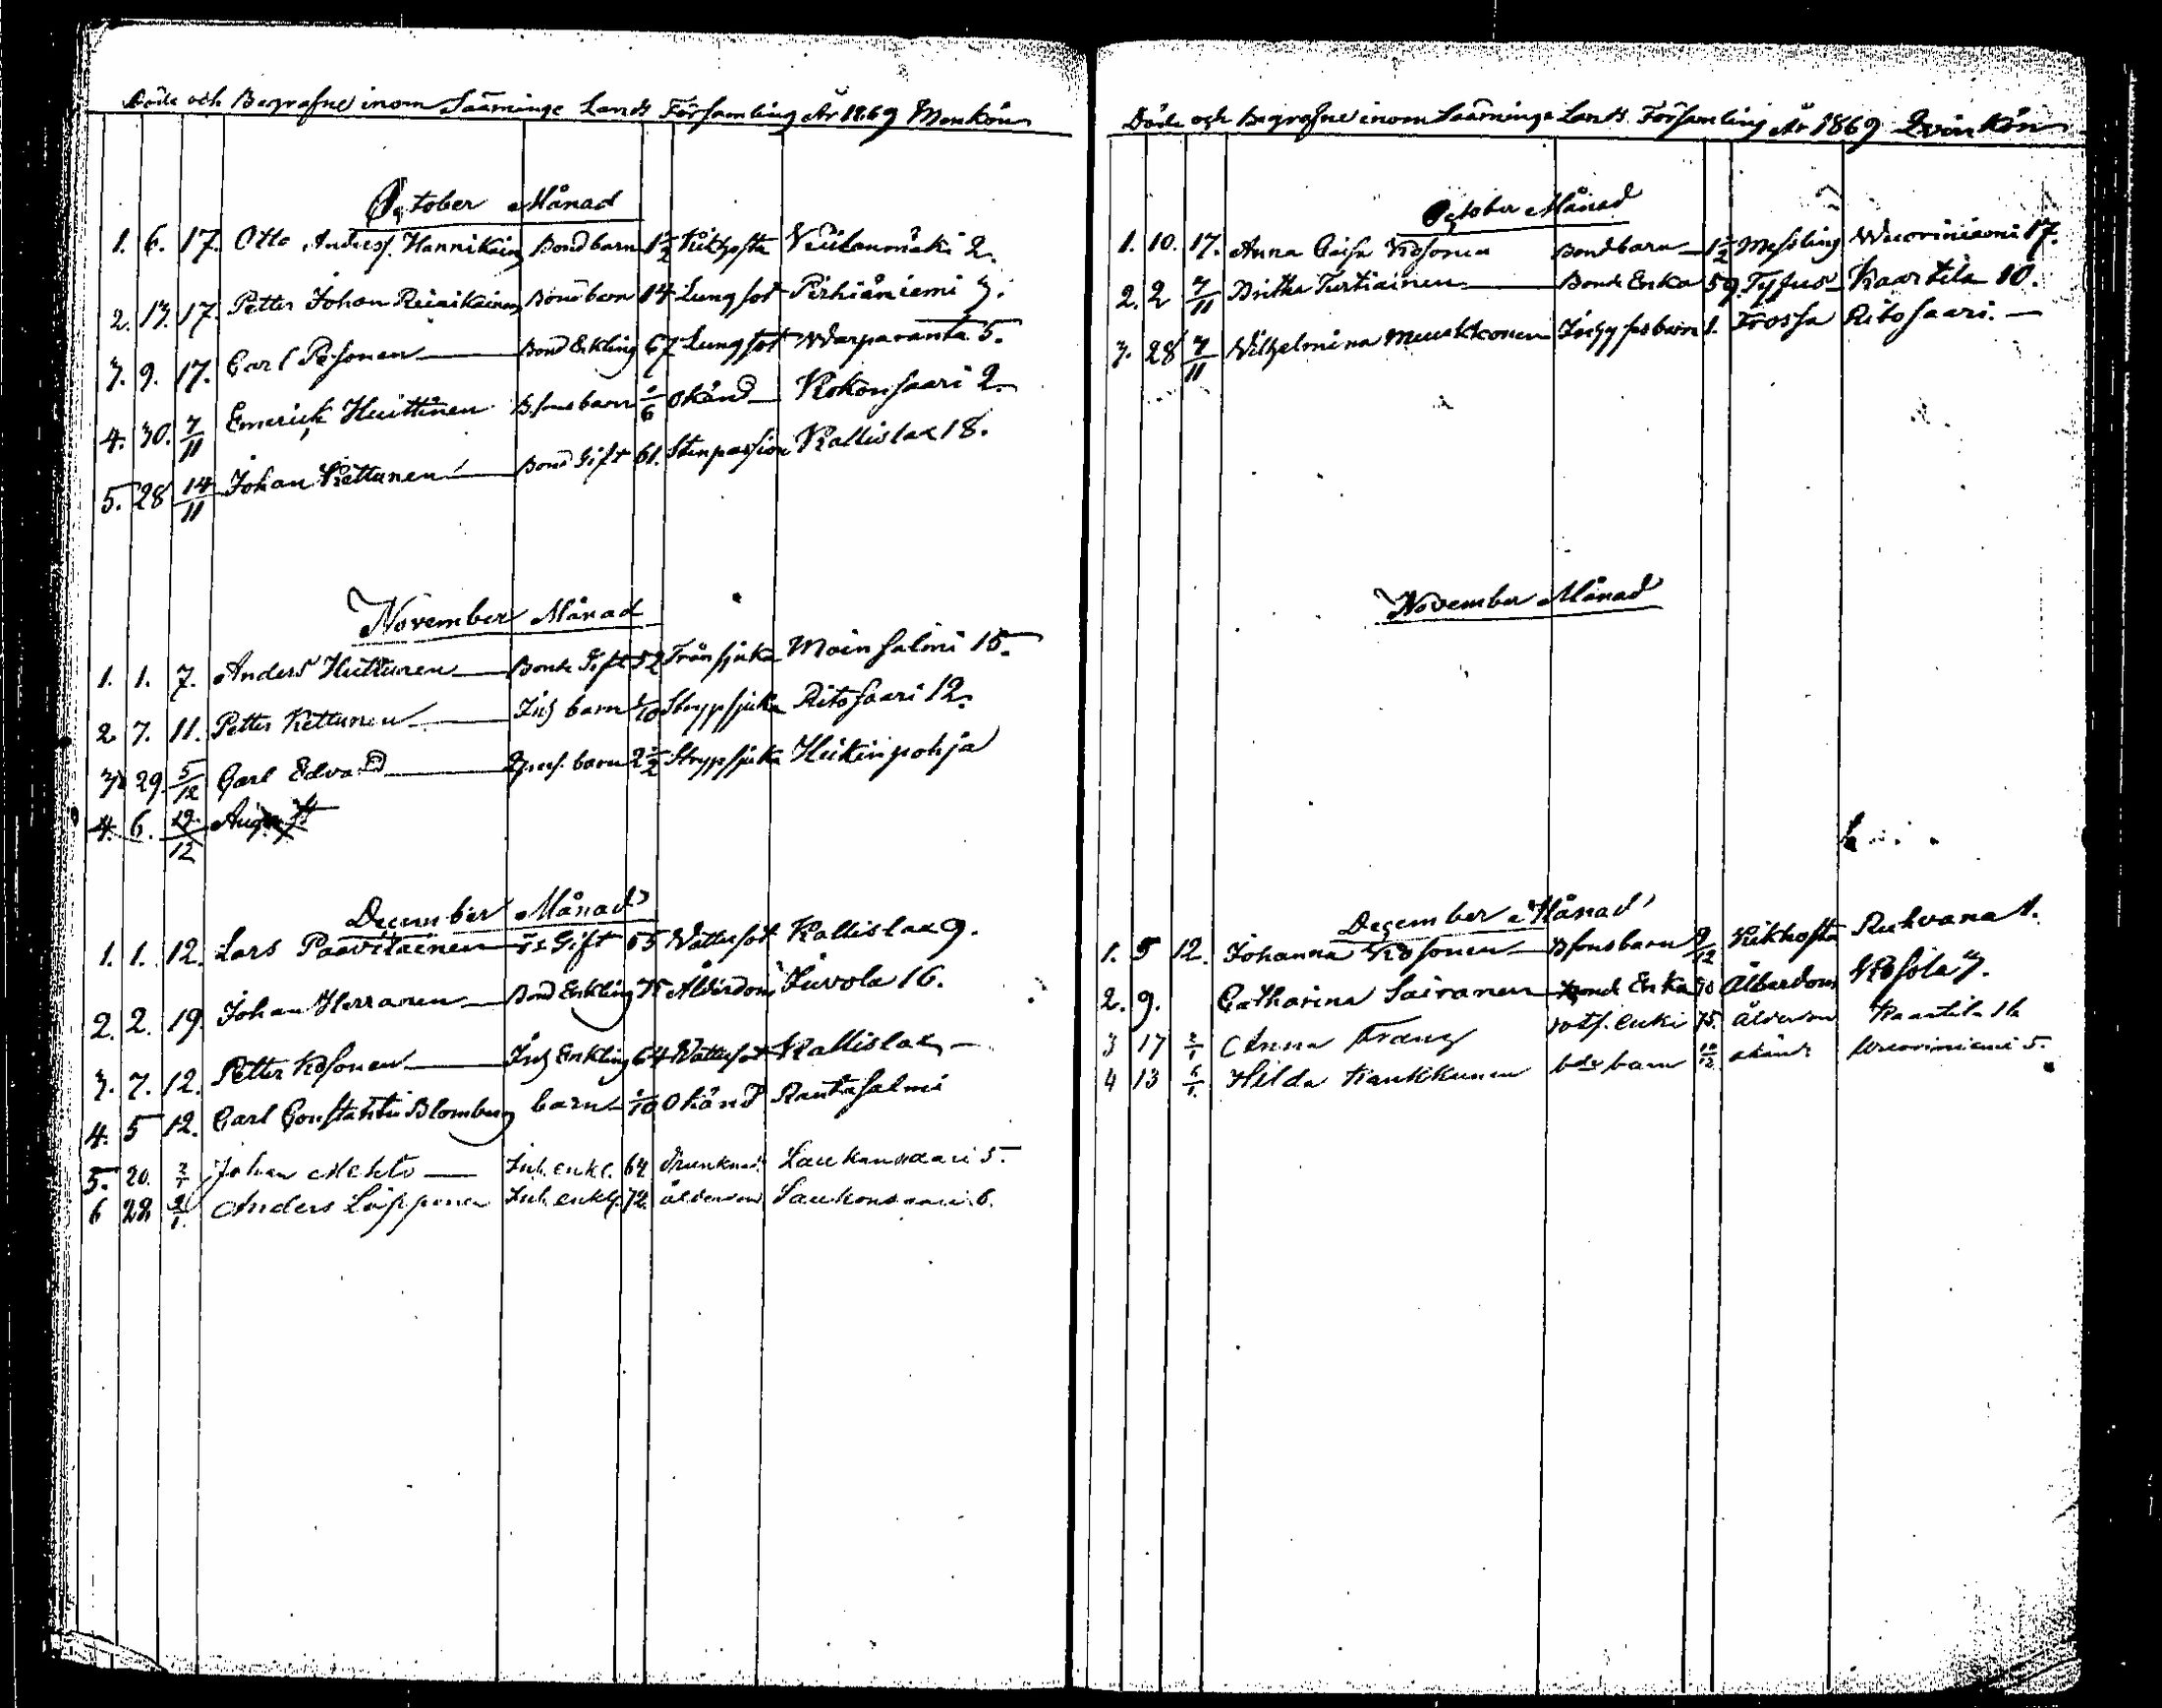 Döde och Begrafne inom Sääminge Lands Församling År 1869 Mankön
October Månad
1. 6. 17. Otto Andersf. Hannikain Bond barn 1 1/2 Kikhosta 2.
2. 13. 17. Petter Johan Bond barn 14 Lungsot Pirhiäniemi 3.
3. 9. 17. Carl Pesonen Bond Enkling 67 Lungsot Warparanta 5.
4. 30. 7/11 Emerick Huittinen B.sons barn 1/6 Okänd Kokonsaari 2.
5. 28 14/11 Johan Kettunen Bond Gift 61. Stenpassion Kallislax 18.
November Månad
1. 1. 7. Anders Huttunen Bonde Gift 52 Tränsjuka Moinsalmi 15.
2. 7. 11. Petter Kettunen Inh barn 1/10 Strypsjuka Ritosaari 12.
3. 29. 5/12 Carl Edvard barn 2 1/2 Strypsjuka Heikinpohja
4. 6. 19/12 August
December Månad
1. 1. 12. Lars Paavilainen Gift 55 Wattusot Kallislax 9.
2. 2. 19. Johan Herranen Bond Enkling 75 Ålderdom Juvola 16.
3. 7. 12. Petter Kosonen Inh Enkling 64 Wattusot Kallislax
4. 5 12. Carl Constantin Blomberg barn 1/10 Okänd Rantasalmi
5. 20. 2/1 Johan Mehto Inh. enkl. 64 Laukansaari 5.
6 28 2/1. Anders Läpponen Inh. enkg. 72. ålderdom Laukansaari 6.
Döde och Begrafne inom Sääminge Lands Församling År 1869 Qvinkön
October Månad
1. 10. 17. Anna Caisa Kosonen Bond barn 1 1/2 Messling Wuoriniemi 17.
2. 2 7/11 Britha Turtiainen Bonde Enka 59. Tyfus Kaartila 10.
3. 28 7/11 Wilhelmina Muukkonen barn 1. Frossa Ritosaari.
November Månad
December Månad
1. 5 12. Johanna Kosonen Bsons barn 9/12 Kikhosta Ruhvana 1.
2. 9. Catharina Sairanen Bond Enka 70 Ålderdom Kosola 3.
3 17 2/1 Anna Frang enka 75. ålderdom Kaartila 16
4 13 6/1. Hilda Kaukkunen barn 10/12 okänd Wuoriniemi 5.